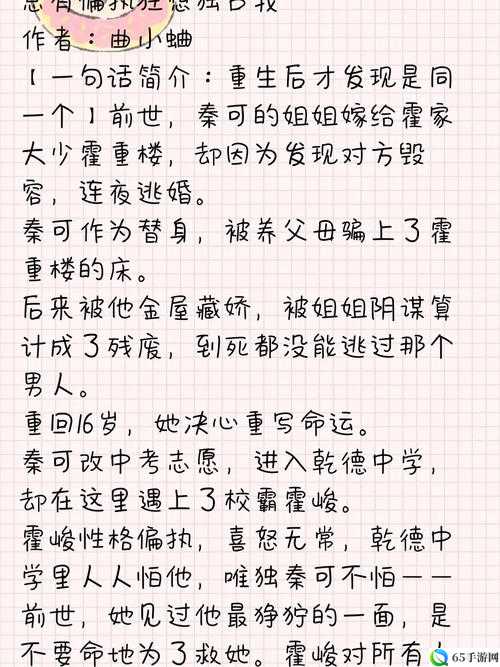 总有偏执狂想独占我
作者：曲小蛐
【一句话简介：重生后才发现是同
一个】前世，秦可的姐姐嫁给霍家
大少霍重楼，却因为发现对方毁
容，连夜逃婚。
秦可作为替身，被养父母骗上了霍
重楼的床。
后来被他金屋藏娇，被姐姐阴谋算
计成了残废，到死都没能逃过那个
男人。
重回16岁，她决心重写命运。
秦可改中考志愿，进入乾德中学，
却在这里遇上了校霸霍峻。
霍峻性格偏执，喜怒无常，乾德中
学里人人怕他，唯独秦可不怕——
前世，她见过他最狰狞的一面，是
不要命地为了救她。霍峻对所有人
65手游网